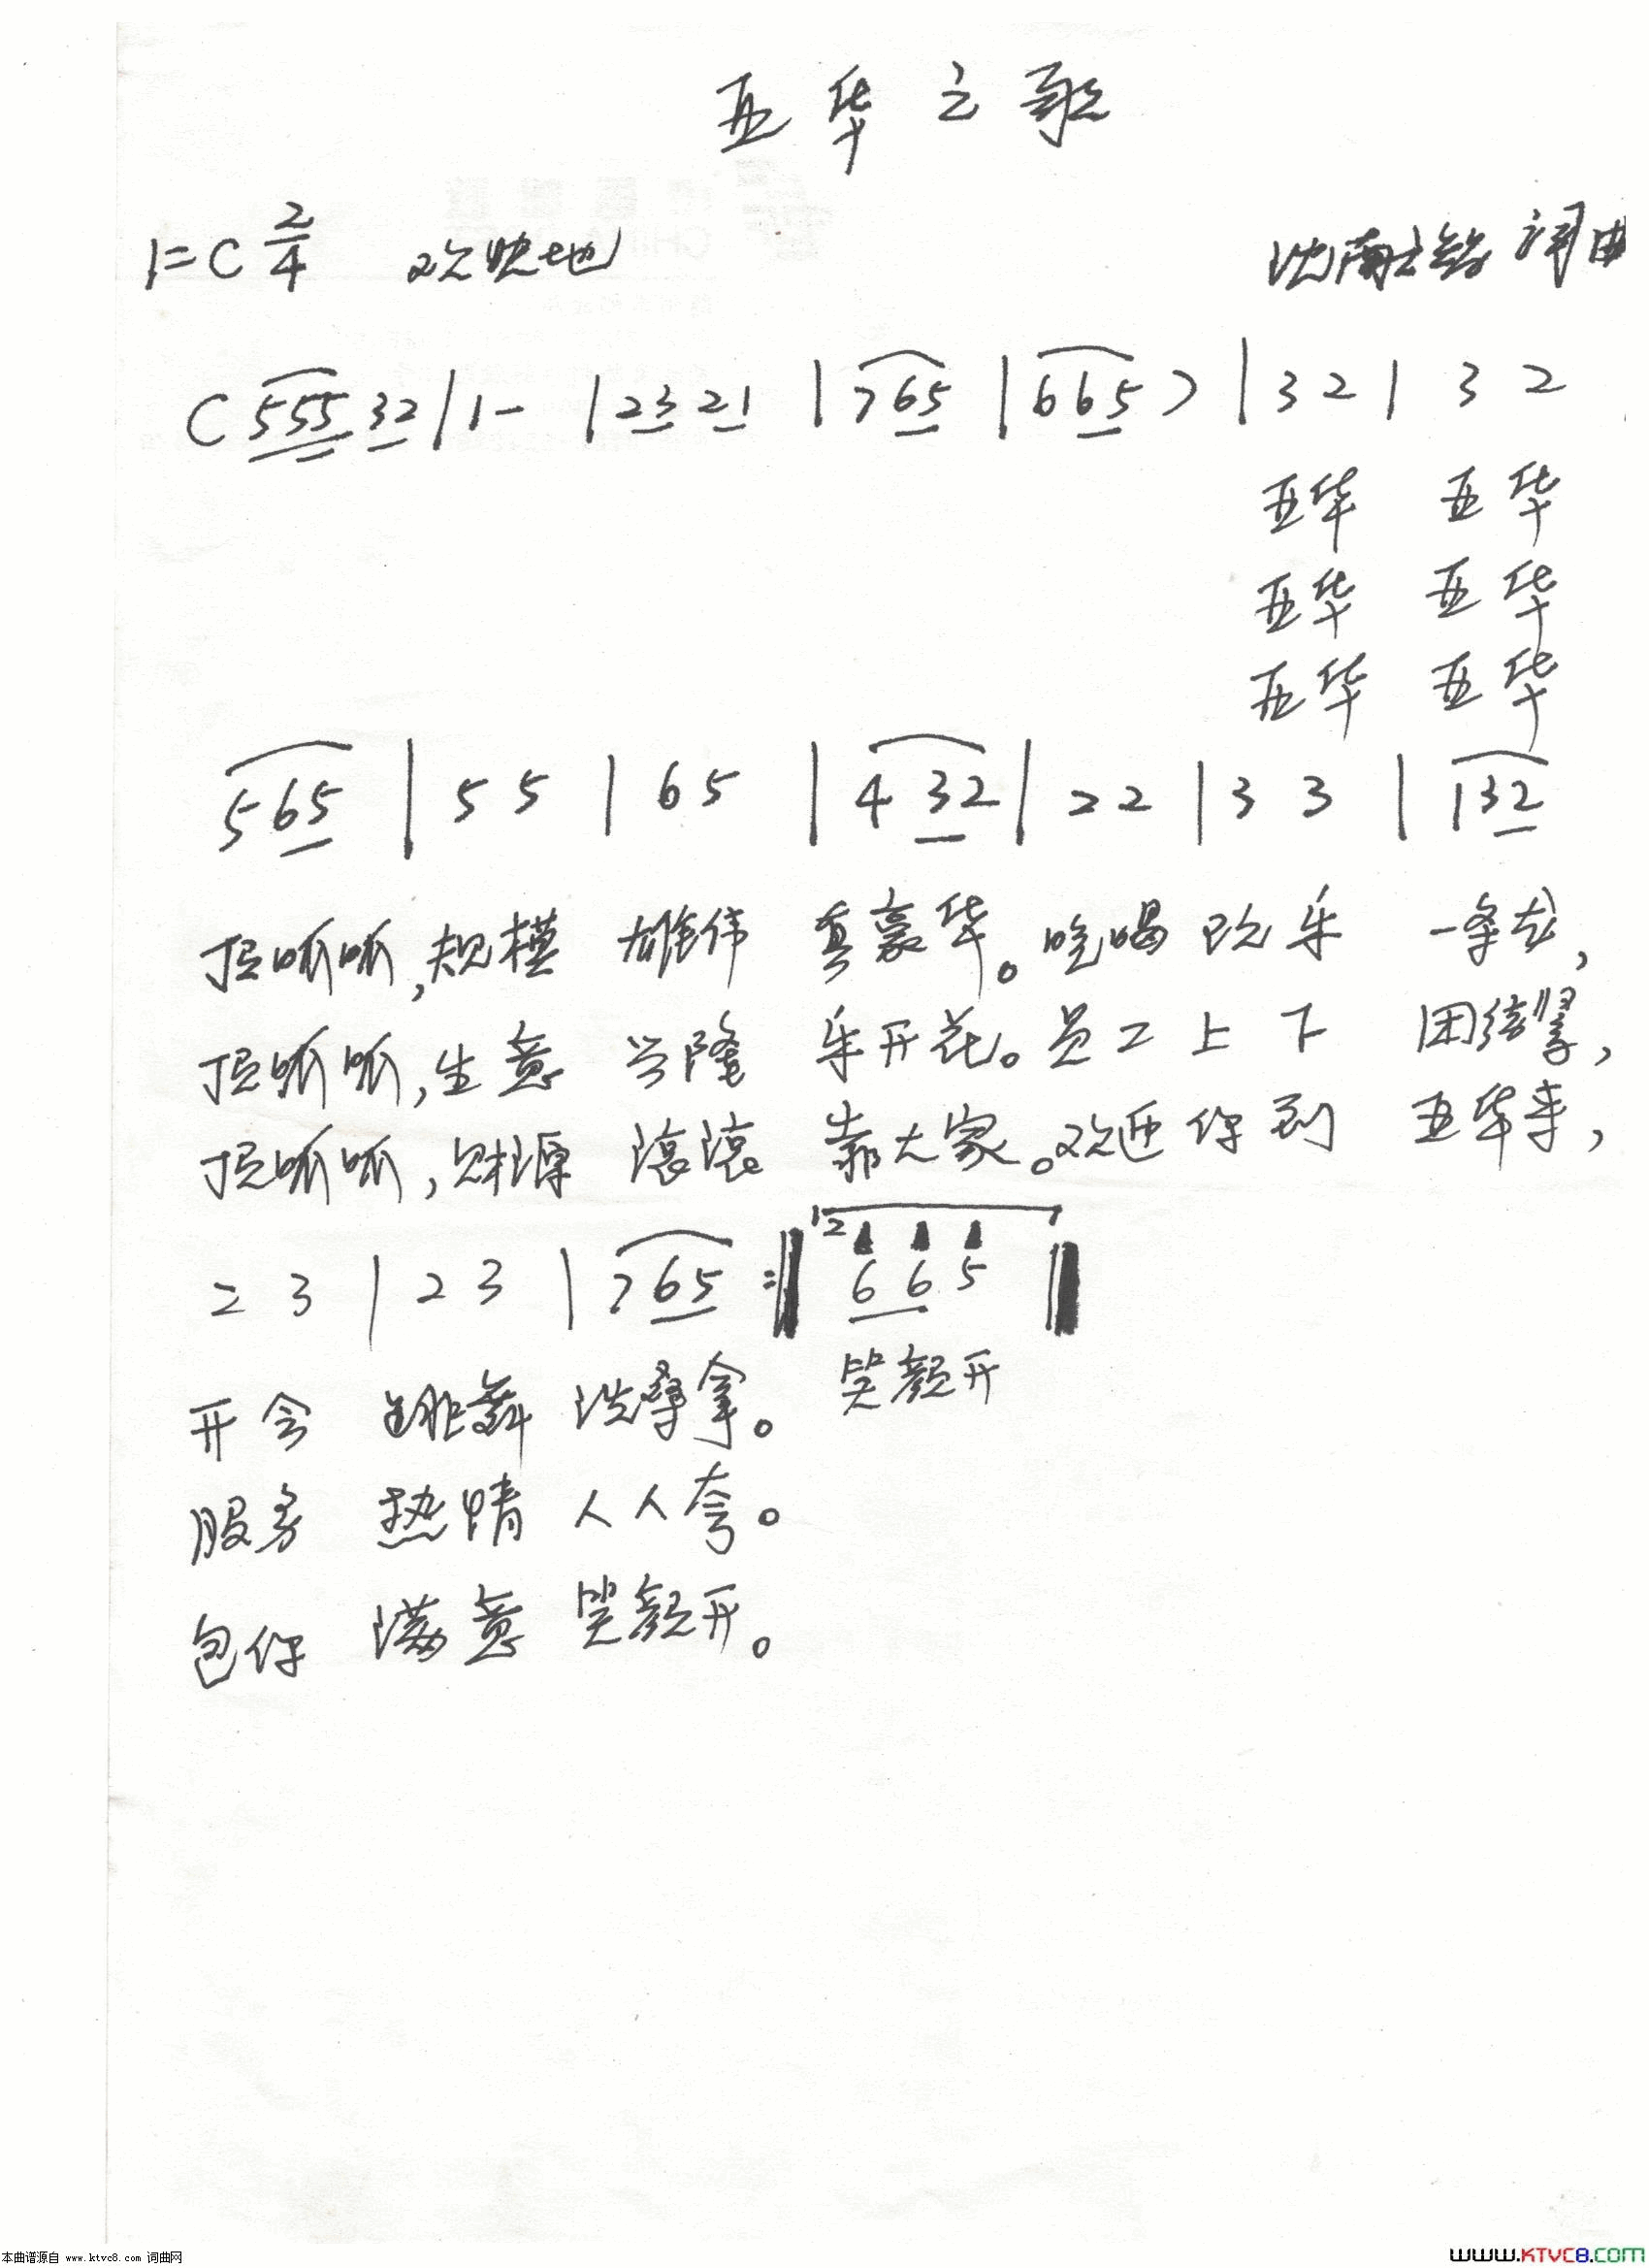 亚华之歌
1=C 2/4 欢快地 词曲
C 555 32 | 1 - | 23 21 | 765 | 665 ) | 3 2 | 3 2
亚华 亚华
亚华 亚华
亚华 亚华
565 | 5 5 | 6 5 | 4 32 | 2 2 | 3 3 | 132
顶呱呱,规模 雄伟 真豪华。吃喝 玩乐 一条龙,
顶呱呱,生意 兴隆 乐开花。员工 上下 团结紧,
顶呱呱,财源 滚滚 靠大家。欢迎 你到 亚华来,
2 3 | 2 3 | 765 :‖ 12 6 6 5 ‖
开会 跳舞 洗桑拿。 笑颜开
服务 热情 人人夸。
包你 满意 笑颜开。
本曲谱源自 www.ktvc8.com 词曲网
WWW.KTVC8.COM